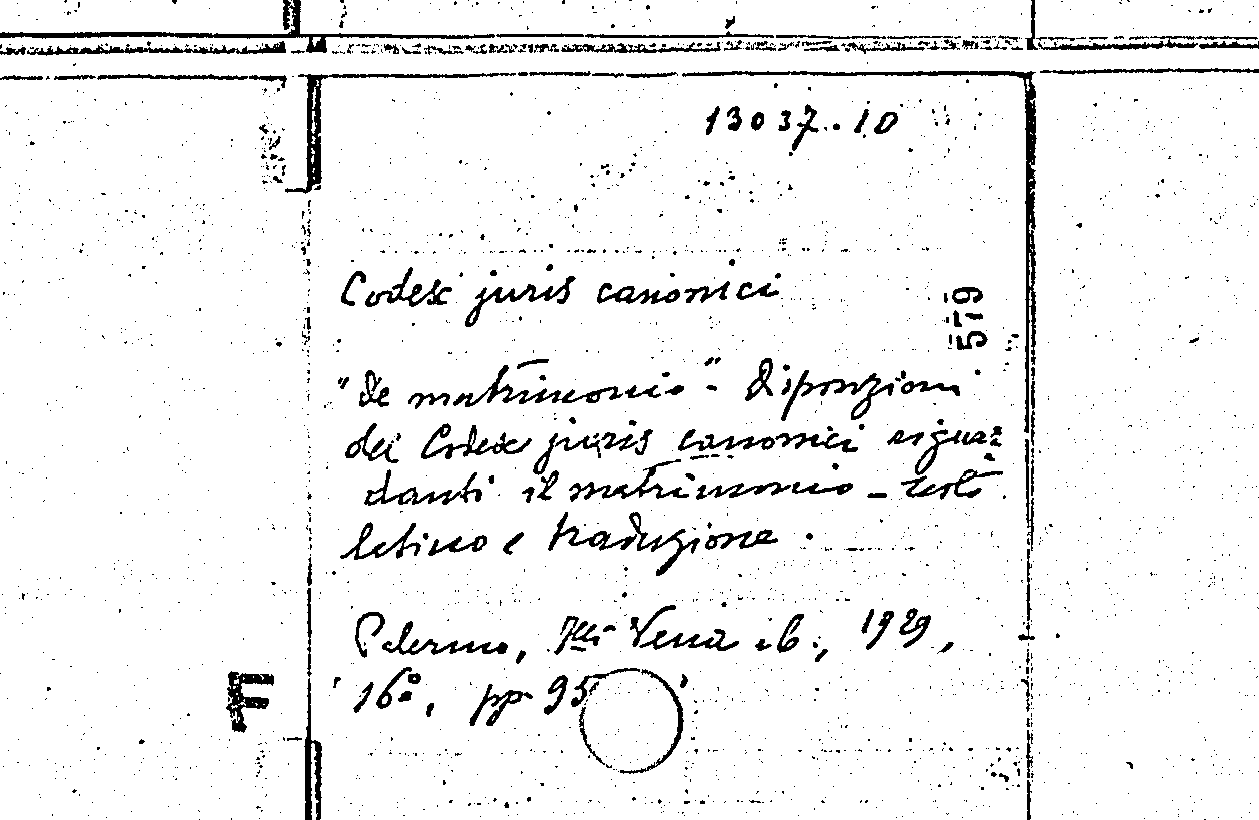 13037.10
Codex juris canonici
579
"de matrimonio" - Disposizioni
del Codex juris canonici riguar=
danti il matrimonio - testo
latino e traduzione.
Palermo, Vena 1929,
16°, pp. 95
F